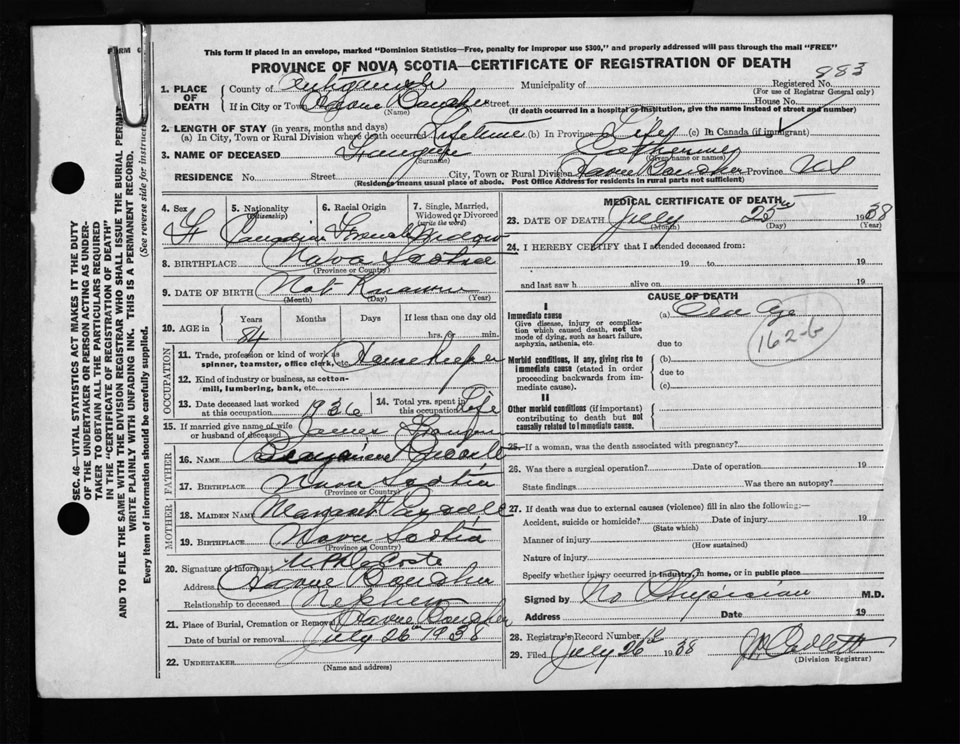 FORM 6
This form if placed in an envelope, marked "Dominion Statistics—Free, penalty for improper use $300," and properly addressed will pass through the mail "FREE"
PROVINCE OF NOVA SCOTIA—CERTIFICATE OF REGISTRATION OF DEATH
1. PLACE OF DEATH County of Antigonish Municipality of Registered No. 883
(For use of Registrar General only)
If in City or Town Havre Boucher Street House No.
(Name) (If death occurred in a hospital or institution, give the name instead of street and number)
2. LENGTH OF STAY (in years, months and days)
(a) In City, Town or Rural Division where death occurred Lifetime (b) In Province Life (c) In Canada (if immigrant)
3. NAME OF DECEASED Catherine
(Surname) (Given name or names)
RESIDENCE No. Street City, Town or Rural Division Havre Boucher Province NS
(Residence means usual place of abode. Post Office Address for residents in rural parts not sufficient)
4. Sex F 5. Nationality (Citizenship) Canadian 6. Racial Origin French 7. Single, Married, Widowed or Divorced (write the word) Widow
8. BIRTHPLACE Nova Scotia
(Province or Country)
9. DATE OF BIRTH Not Known
(Month) (Day) (Year)
10. AGE in Years 84 Months Days If less than one day old hrs. or min.
OCCUPATION
11. Trade, profession or kind of work as spinner, teamster, office clerk, etc. House Keeper
12. Kind of industry or business, as cotton-mill, lumbering, bank, etc.
13. Date deceased last worked at this occupation 1936 14. Total yrs. spent in this occupation Life
15. If married give name of wife or husband of deceased James
FATHER
16. NAME
17. BIRTHPLACE Nova Scotia
(Province or Country)
MOTHER
18. MAIDEN NAME Margaret
19. BIRTHPLACE Nova Scotia
(Province or Country)
20. Signature of Informant
Address Havre Boucher
Relationship to deceased Nephew
21. Place of Burial, Cremation or Removal Havre Boucher
Date of burial or removal July 26th 1938
22. UNDERTAKER
(Name and address)
MEDICAL CERTIFICATE OF DEATH
23. DATE OF DEATH July 25th 1938
(Month) (Day) (Year)
24. I HEREBY CERTIFY that I attended deceased from:
19 to 19
and last saw h alive on 19
CAUSE OF DEATH
I
Immediate cause (a) Old Age
Give disease, injury or complication which caused death, not the mode of dying, such as heart failure, asphyxia, asthenia, etc.
due to
162-b
Morbid conditions, if any, giving rise to immediate cause (stated in order proceeding backwards from immediate cause).
(b)
due to
(c)
II
Other morbid conditions (if important) contributing to death but not causally related to immediate cause.
25. If a woman, was the death associated with pregnancy?
26. Was there a surgical operation? Date of operation 19
State findings Was there an autopsy?
27. If death was due to external causes (violence) fill in also the following:—
Accident, suicide or homicide? Date of injury 19
(State which)
Manner of injury
(How sustained)
Nature of injury
Specify whether injury occurred in industry, in home, or in public place
Signed by No Physician M.D.
Address Date 19
28. Registrar's Record Number
29. Filed July 26th 1938
(Division Registrar)
SEC. 46—VITAL STATISTICS ACT MAKES IT THE DUTY
OF THE UNDERTAKER OR PERSON ACTING AS UNDER-
TAKER TO OBTAIN ALL THE PARTICULARS REQUIRED
IN THE "CERTIFICATE OF REGISTRATION OF DEATH"
AND TO FILE THE SAME WITH THE DIVISION REGISTRAR WHO SHALL ISSUE THE BURIAL PERMIT
WRITE PLAINLY WITH UNFADING INK. THIS IS A PERMANENT RECORD.
Every item of information should be carefully supplied. (See reverse side for instruc